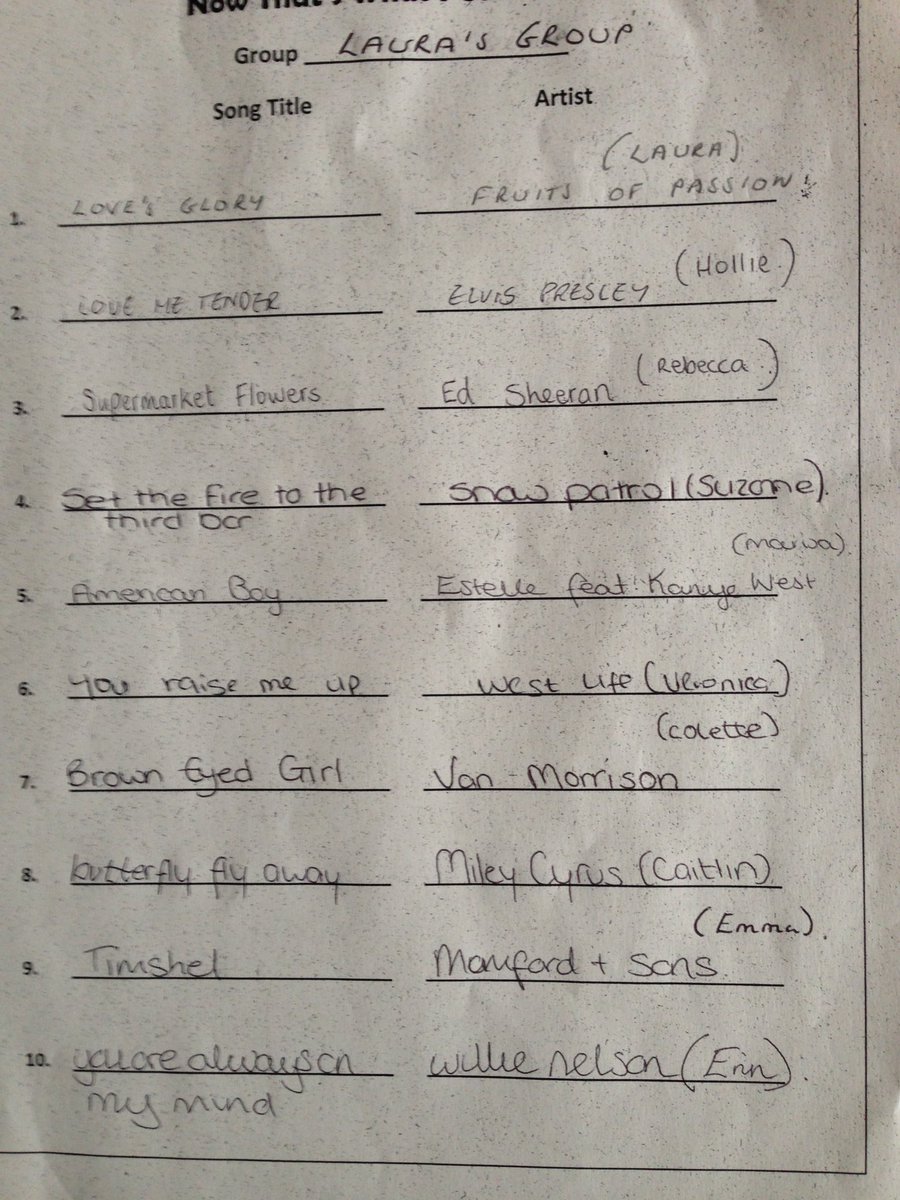 Now That's What
Group LAURA'S GROUP
Song Title Artist
(LAURA)
1. LOVE'S GLORY FRUITS OF PASSION!
(Hollie)
2. LOVE ME TENDER ELVIS PRESLEY
(Rebecca)
3. Supermarket Flowers Ed Sheeran
4. Set the fire to the snow patrol (Suzanne).
third bar
(Marwa).
5. American Boy Estelle feat. Kanye West
6. You raise me up west life (Veronica)
(colette)
7. Brown Eyed Girl Van Morrison
8. butterfly fly away Miley Cyrus (Caitlin)
(Emma).
9. Timshel Momford + Sons
10. you are always on willie nelson (Erin).
my mind